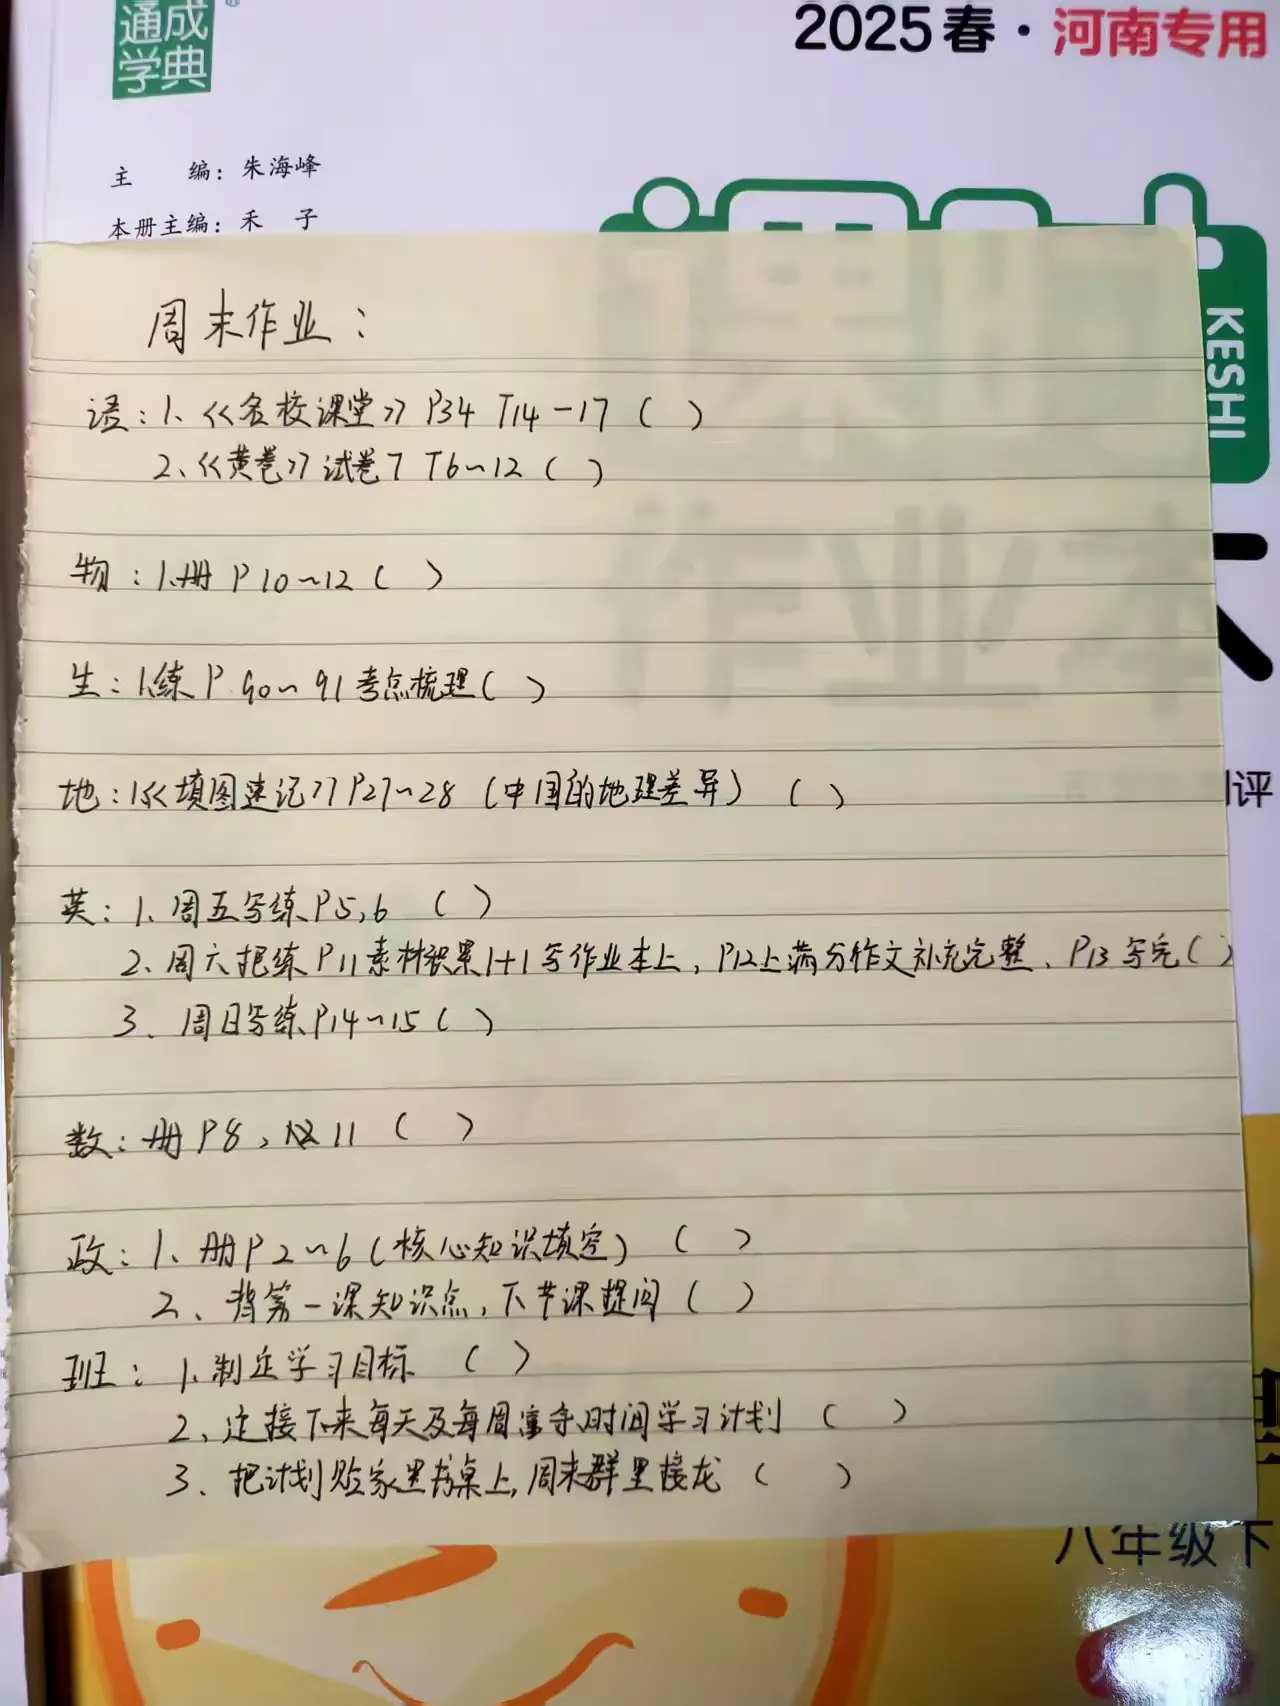 通成
学典
2025春·河南专用
主 编：朱海峰
本册主编：禾 子
KESHI
周末作业：
语：1、《名校课堂》P34 T14-17（ ）
2、《黄卷》试卷7 T6~12（ ）
物：1.册P10~12（ ）
生：1.练P.90~91考点梳理（ ）
地：1.《填图速记》P27~28（中国的地理差异）（ ）
测评
英：1、周五写练P5,6（ ）
2、周六把练P11素材积累1+1写作业本上，P12上满分作文补充完整、P13写完（ ）
3、周日写练P14~15（ ）
数：册P8、11（ ）
政：1、册P2~6（核心知识填空）（ ）
2、背第一课知识点，下节课提问（ ）
班：1.制定学习目标（ ）
2、定接下来每天及每周富余时间学习计划（ ）
3、把计划贴家里书桌上，周末群里接龙（ ）
八年级下